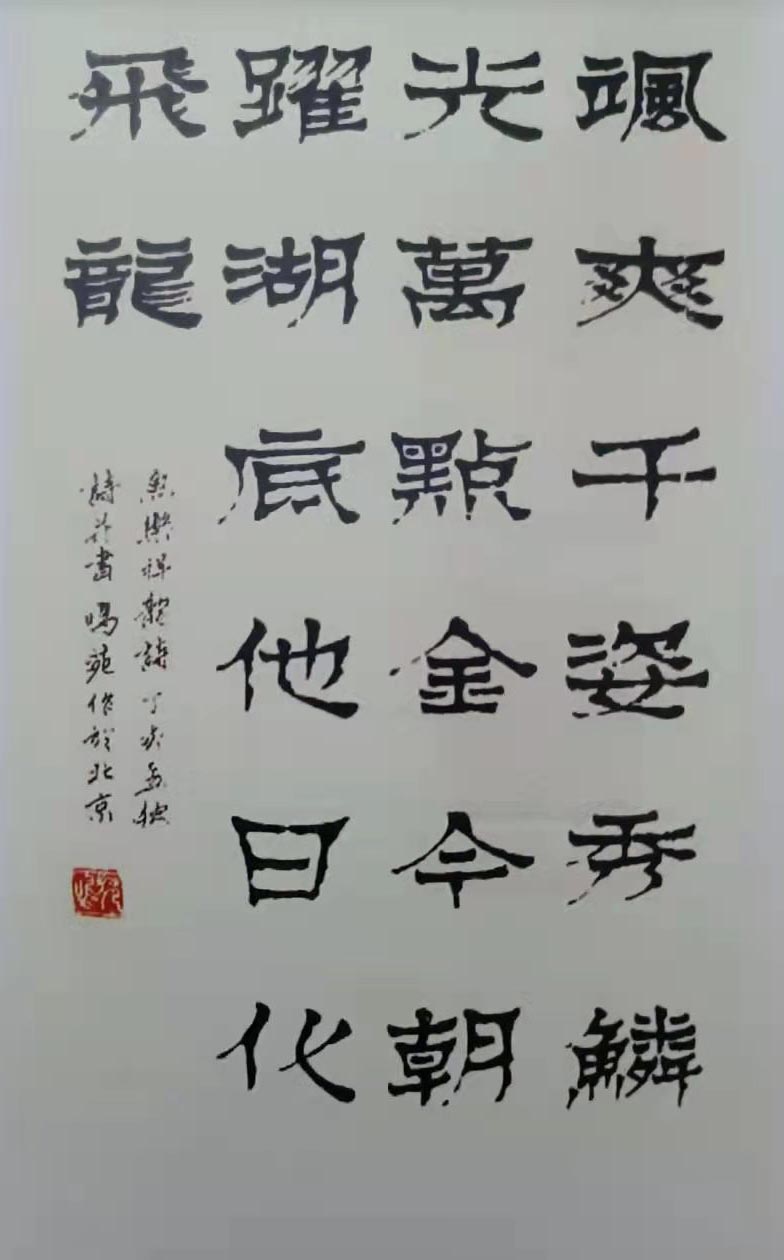 颯爽千姿秀鱗
光萬點金今朝
躍湖底他日化
飛龍
魚樂祥龍詩丁亥
詩並書鳴苑作於北京